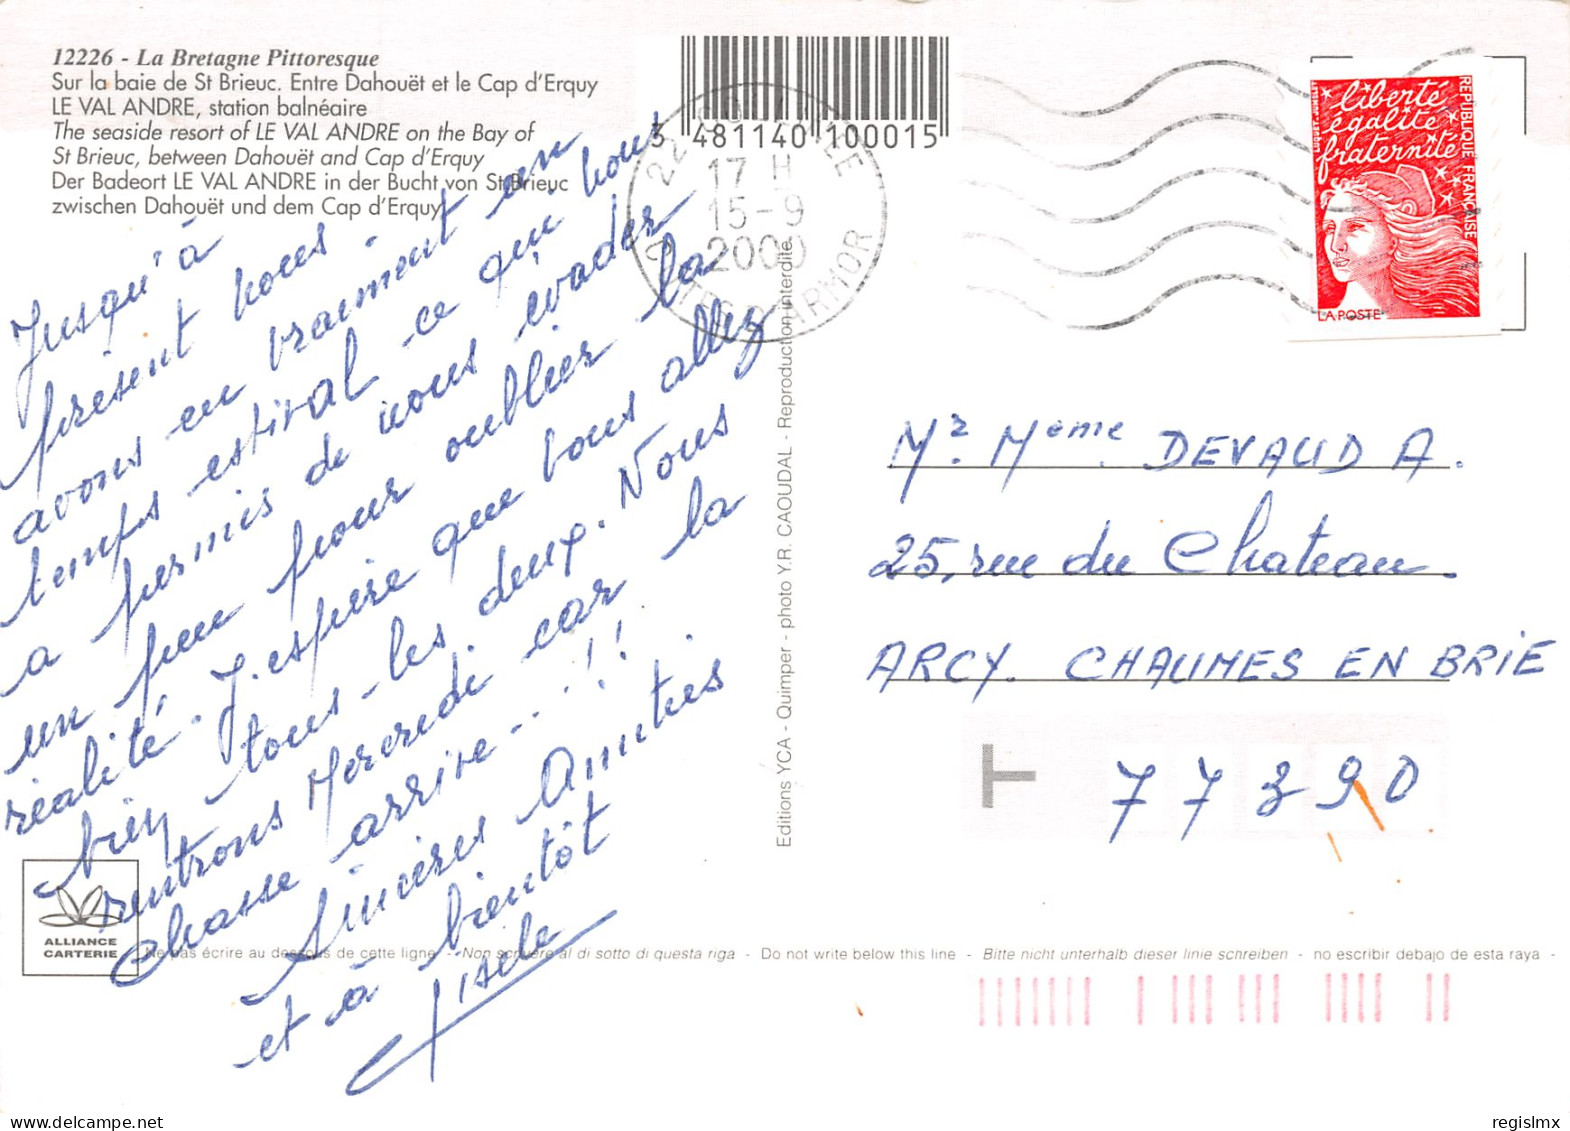 12226 - La Bretagne Pittoresque
Sur la baie de St Brieuc. Entre Dahouët et le Cap d'Erquy
LE VAL ANDRE, station balnéaire
The seaside resort of LE VAL ANDRE on the Bay of
St Brieuc, between Dahouët and Cap d'Erquy
Der Badeort LE VAL ANDRE in der Bucht von St Brieuc
zwischen Dahouët und dem Cap d'Erquy
3 481140 100015
17 H
15-9
2000
22
CÔTES D'ARMOR
liberté
égalité
fraternité
REPUBLIQUE FRANÇAISE
LA POSTE
Jusqu'à
présent nous
avons eu vraiment un
temps estival ce qui nous
a permis de nous évader
un peu pour oublier la
réalité. J'espère que vous allez
bien tous-les deux. Nous
rentrons Mercredi car la
chasse arrive...!!
Sincères Amitiés
et à bientôt
Gisèle
Editions YCA - Quimper - photo Y.R. CAOUDAL - Reproduction interdite
Mr. Mme DEVAUD A.
25, rue du Chateau.
ARCY. CHAUMES EN BRIE
T
77390
ALLIANCE
CARTERIE
Ne pas écrire au dessous de cette ligne - Non scrivere al di sotto di questa riga - Do not write below this line - Bitte nicht unterhalb dieser linie schreiben - no escribir debajo de esta raya -
regislmx